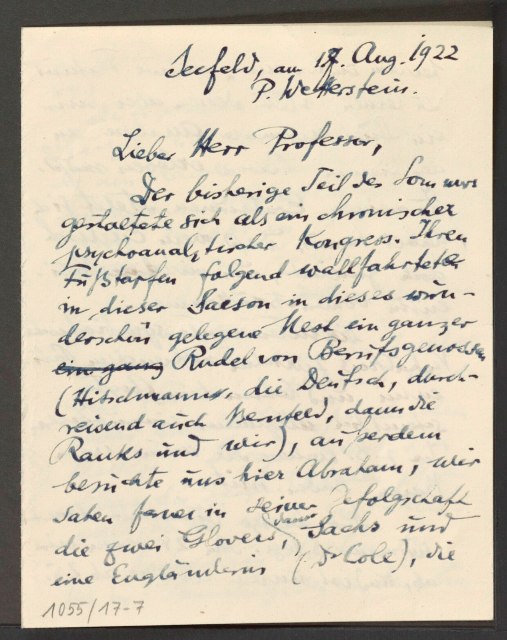 Seefeld, am 17. Aug. 1922
P. Wetterstein.
Lieber Herr Professor,
Der bisherige Teil des Sommers
gestaltete sich als ein chronischer
psychoanalytischer Kongress. Ihren
Fußtapfen folgend wallfahrtete
in dieser Saeson in dieses wun-
derschön gelegene Nest ein ganzer
ein ganz Rudel von Berufsgenossen
(Hitschmann, die Deutsch, durch-
reisend auch Bernfeld, dann die
Ranks und wir), außerdem
besuchte uns hier Abraham, wir
sahen ferner in seiner Gefolgschaft
die zwei Glovers, dann Sachs und
eine Engländerin (Dr Cole), die
1055/17-7